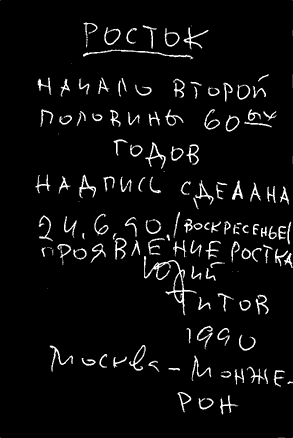 РОСТОК
НАЧАЛО ВТОРОЙ
ПОЛОВИНЫ 60ых
ГОДОВ
НАДПИСЬ СДЕЛАНА
24.6.90./ВОСКРЕСЕНЬЕ/
ПРОЯВЛЕНИЕ РОСТКА
ЮРИЙ
ТИТОВ
1990
МОСКВА – МОНЖЕ-
РОН